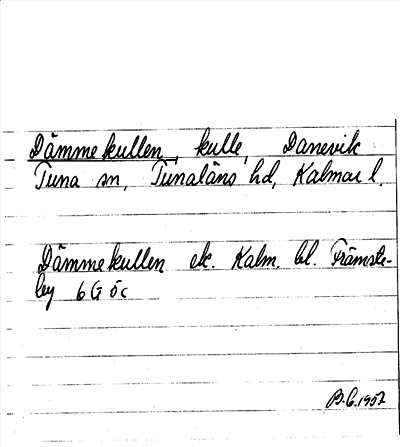 Dämmekullen, kulle, Danevik
Tuna sn, Tunaläns hd, Kalmar l.
Dämmekullen ek. Kalm. bl. Främste-
by 6 G öc
B.G. 1952